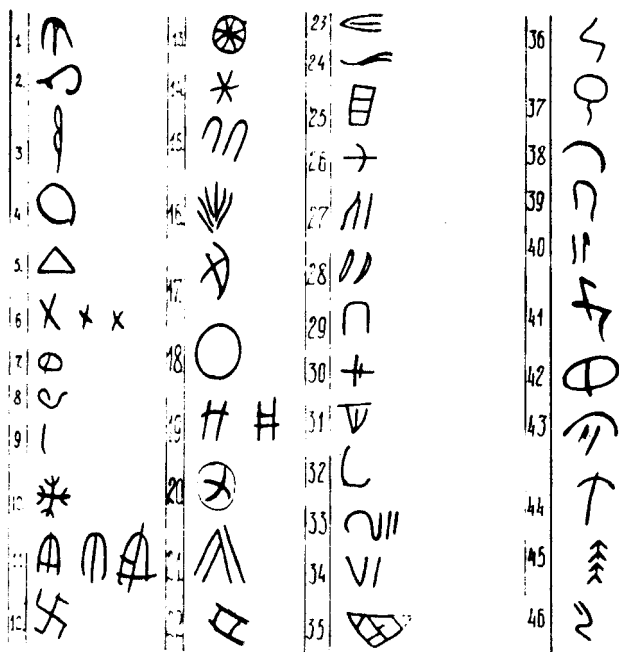 1
2.
3
4
5.
6
7.
8
9
10
11
12
13
14
15
16
17
18
19
20
21
22
23
24
25
26
27
28
29
30
31
32
33
34
35
36
37
38
39
40
41
42
43
44
45
46